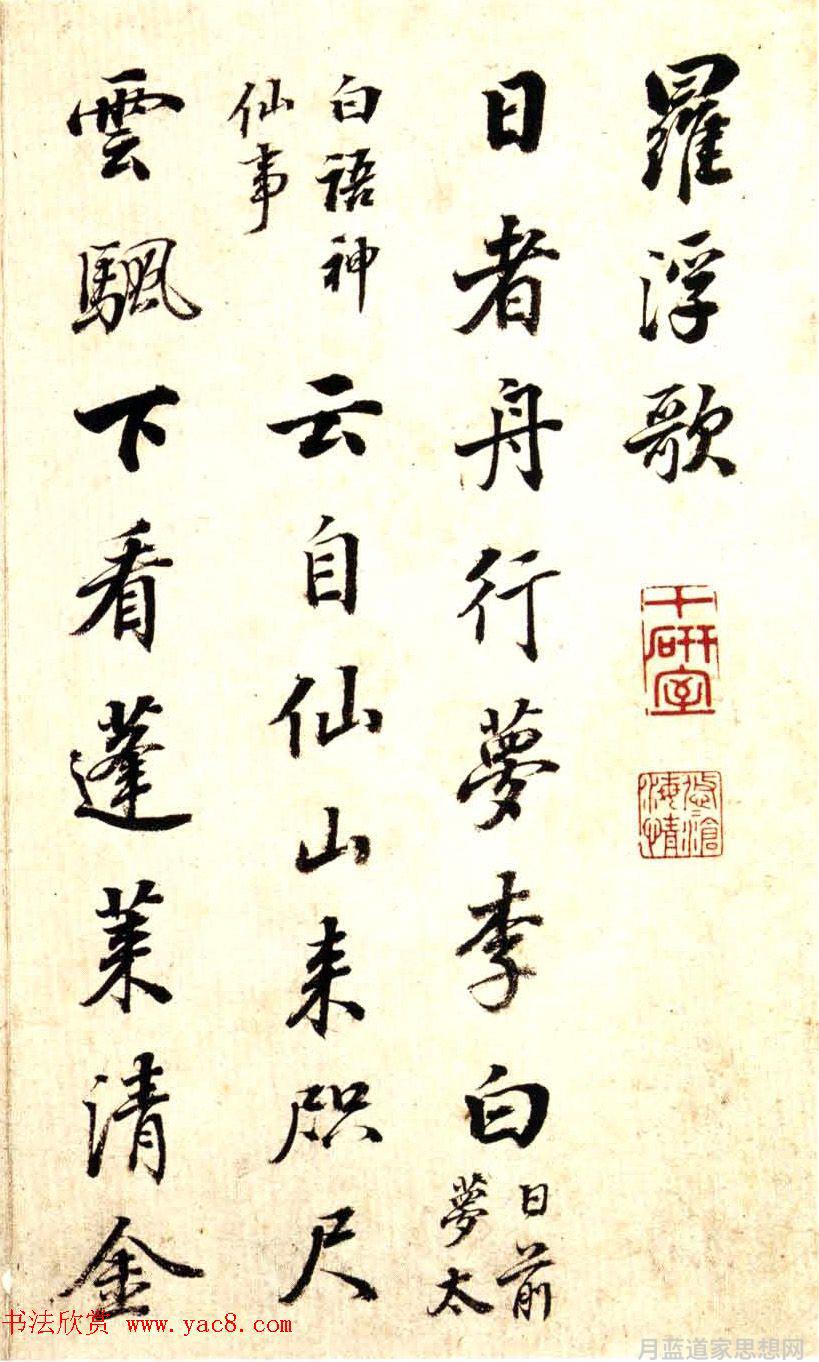 羅浮歌
千研室
悠滄海情
日者舟行夢李白日前夢太
白語神仙事云自仙山来咫尺
雲颿下看蓬莱清金
书法欣赏 www.yac8.com
月蓝道家思想网